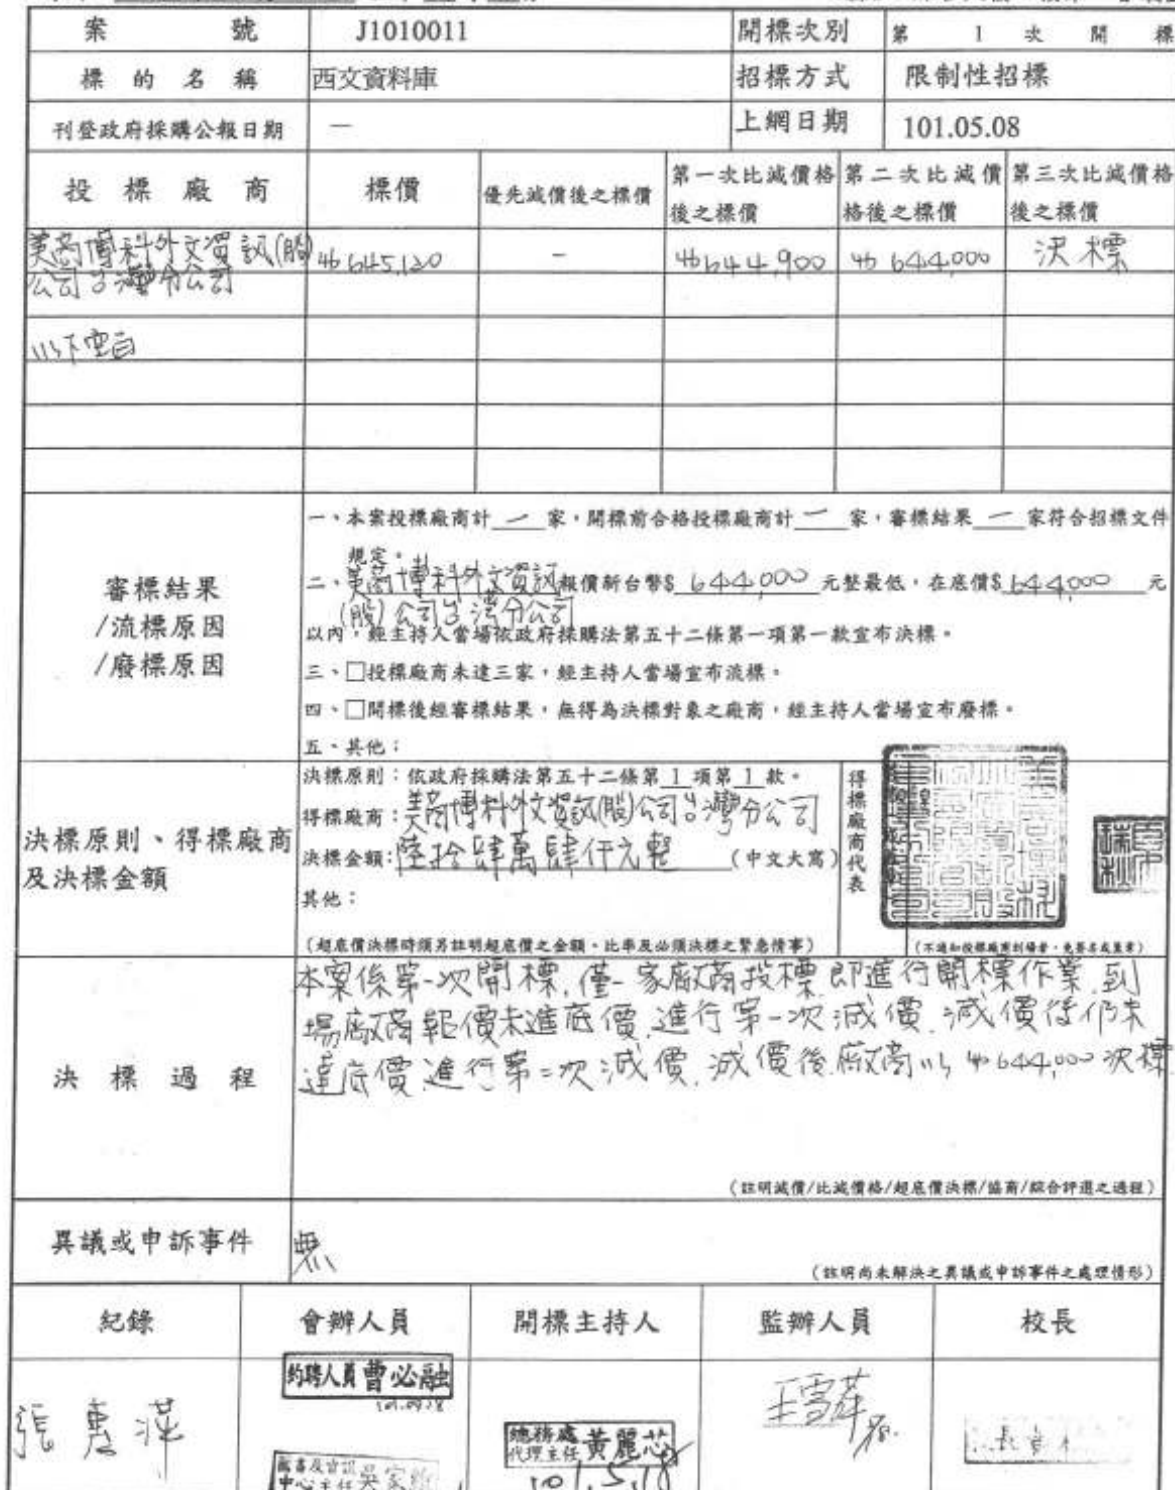 案 號 J1010011 開標次別 第 1 次 開 標
標 的 名 稱 西文資料庫 招標方式 限制性招標
刊登政府採購公報日期 — 上網日期 101.05.08
投 標 廠 商 標價 優先減價後之標價 第一次比減價格後之標價 第二次比減價格後之標價 第三次比減價格後之標價
美商博科外文資訊(股) 645,120 — 644,900 644,000 決標
公司台灣分公司
以下空白
審標結果
/流標原因
/廢標原因
一、本案投標廠商計 一 家,開標前合格投標廠商計 一 家,審標結果 一 家符合招標文件
規定。
二、美商博科外文資訊(股)公司台灣分公司報價新台幣$ 644,000 元整最低,在底價$ 644,000 元
以內,經主持人當場依政府採購法第五十二條第一項第一款宣布決標。
三、□投標廠商未達三家,經主持人當場宣布流標。
四、□開標後經審標結果,無得為決標對象之廠商,經主持人當場宣布廢標。
五、其他:
決標原則、得標廠商
及決標金額
決標原則:依政府採購法第五十二條第 1 項第 1 款。
得標廠商:美商博科外文資訊(股)公司台灣分公司
決標金額:陸拾肆萬肆仟元整 (中文大寫)
其他:
(超底價決標時須另註明超底價之金額、比率及必須決標之緊急情事)
得標廠商代表
(不通知投標廠商到場者,免簽名或蓋章)
決 標 過 程
本案係第一次開標,僅一家廠商投標,即進行開標作業,到
場廠商報價未進底價,進行第一次減價,減價後仍未
達底價,進行第二次減價,減價後廠商以 644,000 決標
(註明減價/比減價格/超底價決標/協商/綜合評選之過程)
異議或申訴事件 無
(註明尚未解決之異議或申訴事件之處理情形)
紀錄 會辦人員 開標主持人 監辦人員 校長
約聘人員 曹必融
張惠萍
總務處
代理主任 黃麗芯
101.5.18
圖書及資訊
中心主任